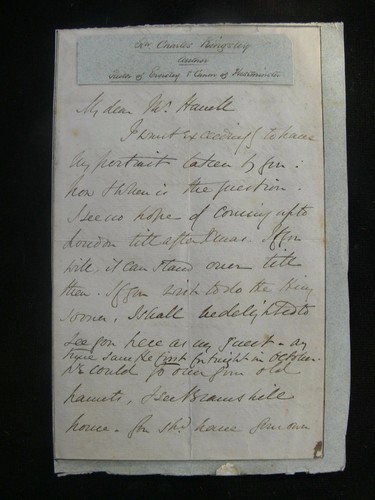 Revd Charles Kingsley
Author
Rector of Eversley & Canon of Westminster
My dear Mr. Havell
I want exceedingly to have
my portrait taken by you:
how & when is the question.
I see no hope of coming up to
London till after Xmas. If you
will, it can stand over till
then. If you wish to do the thing
sooner, I shall be delighted to
see you here as my guest - any
time save the first fortnight in October.
We could go over your old
haunts, & see Bramshill
house - You shd. have your own